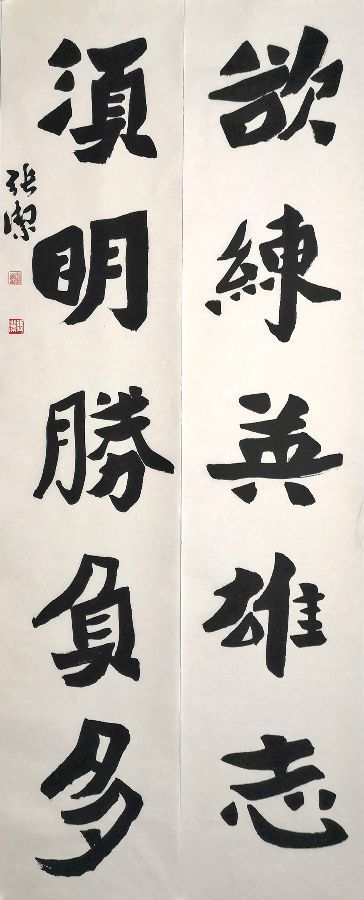 欲練英雄志
須明勝負多
張潔